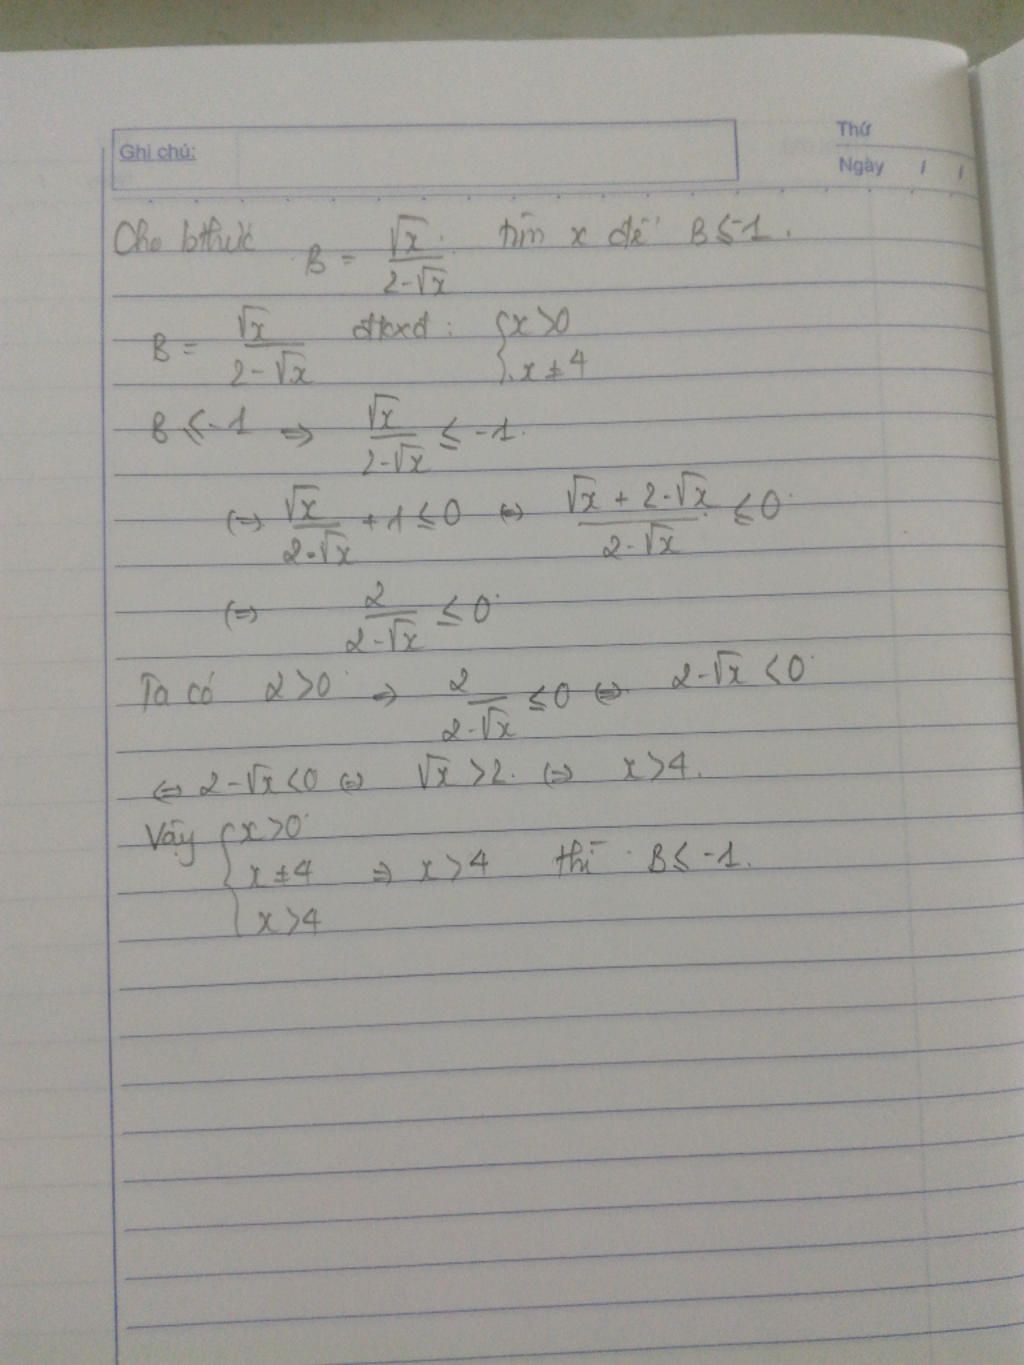 Thứ
Ghi chú:
Ngày / /
Cho bthức B = √x / (2-√x) tìm x để B ≤ -1.
B = √x / (2-√x) đkxđ: { x > 0
x ≠ 4
B ≤ -1 => √x / (2-√x) ≤ -1.
(=) √x / (2-√x) + 1 ≤ 0 (=) (√x + 2-√x) / (2-√x) ≤ 0
(=) 2 / (2-√x) ≤ 0
Ta có 2 > 0 => 2 / (2-√x) ≤ 0 (=) 2-√x < 0
(=) 2-√x < 0 (=) √x > 2. (=) x > 4.
Vậy { x > 0
x ≠ 4 => x > 4 thì B ≤ -1.
x > 4